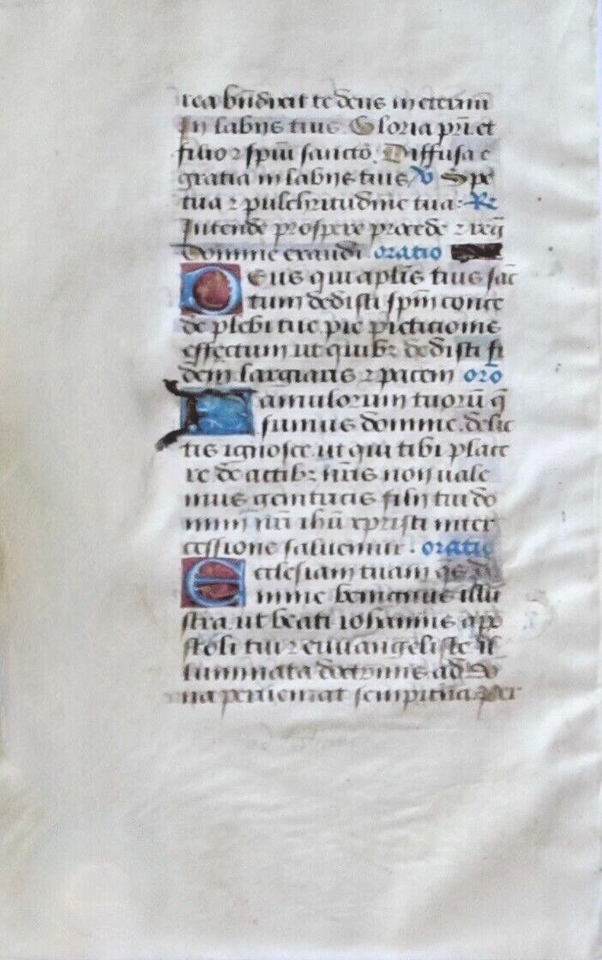 rea bn̄dixit te deus in eternū
In labijs tuis. Gloria pr̄i et
filio ⁊ spūi sanctō. Diffusa ē
gratia in labijs tuis. v Spē
tua ⁊ pulchritudine tua. R
Intende prospere procede ⁊ reg̃
Domine exaudi oratio
Deus qui aplīs tuis sāc
tum dedisti spm̄ conce
de plebi tue pie petitionis
effectum ut quibꝫ dedisti fi
dem largiaris ⁊ pacem orō
Famulorum tuorū q̄
sumus domine delic
tis ignosce ut qui tibi place
re de actibꝫ nr̄is non uale
mus genitricis filij tui do
mini nr̄i ihū xpristi inter
cessione saluemur. oratio
Ecclesiam tuam qs̄ do
mine benignus illu
stra ut beati iohannis apo
stoli tui ⁊ euuangeliste il
luminata doctrinis ad do
na perueniat sempiterna. per